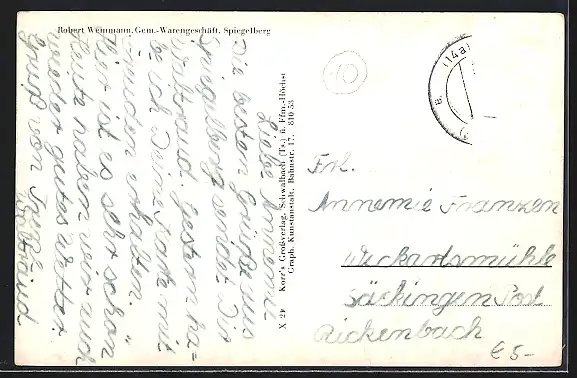 Robert Weinmann, Gem.-Warengeschäft, Spiegelberg
Liebe Annemie
Die besten Grüße aus
Spiegelberg sendet Dir
Waltraud. Gestern ha-
be ich Deine Karte mit
Freuden erhalten.
Hier ist es sehr schön
Heute haben wir auch
wieder gutes Wetter.
Gruß von
Waltraud
X 29 Korr's Großverlag, Schwalbach (Ts.) ü. Ffm.-Höchst
Graph. Kunstanstalt, Bahnstr. 17. 810 53
10
(14a)
Frl.
Annemie Franzen
Wickartsmühle
Säckingen Post
Rickenbach
€ 5-